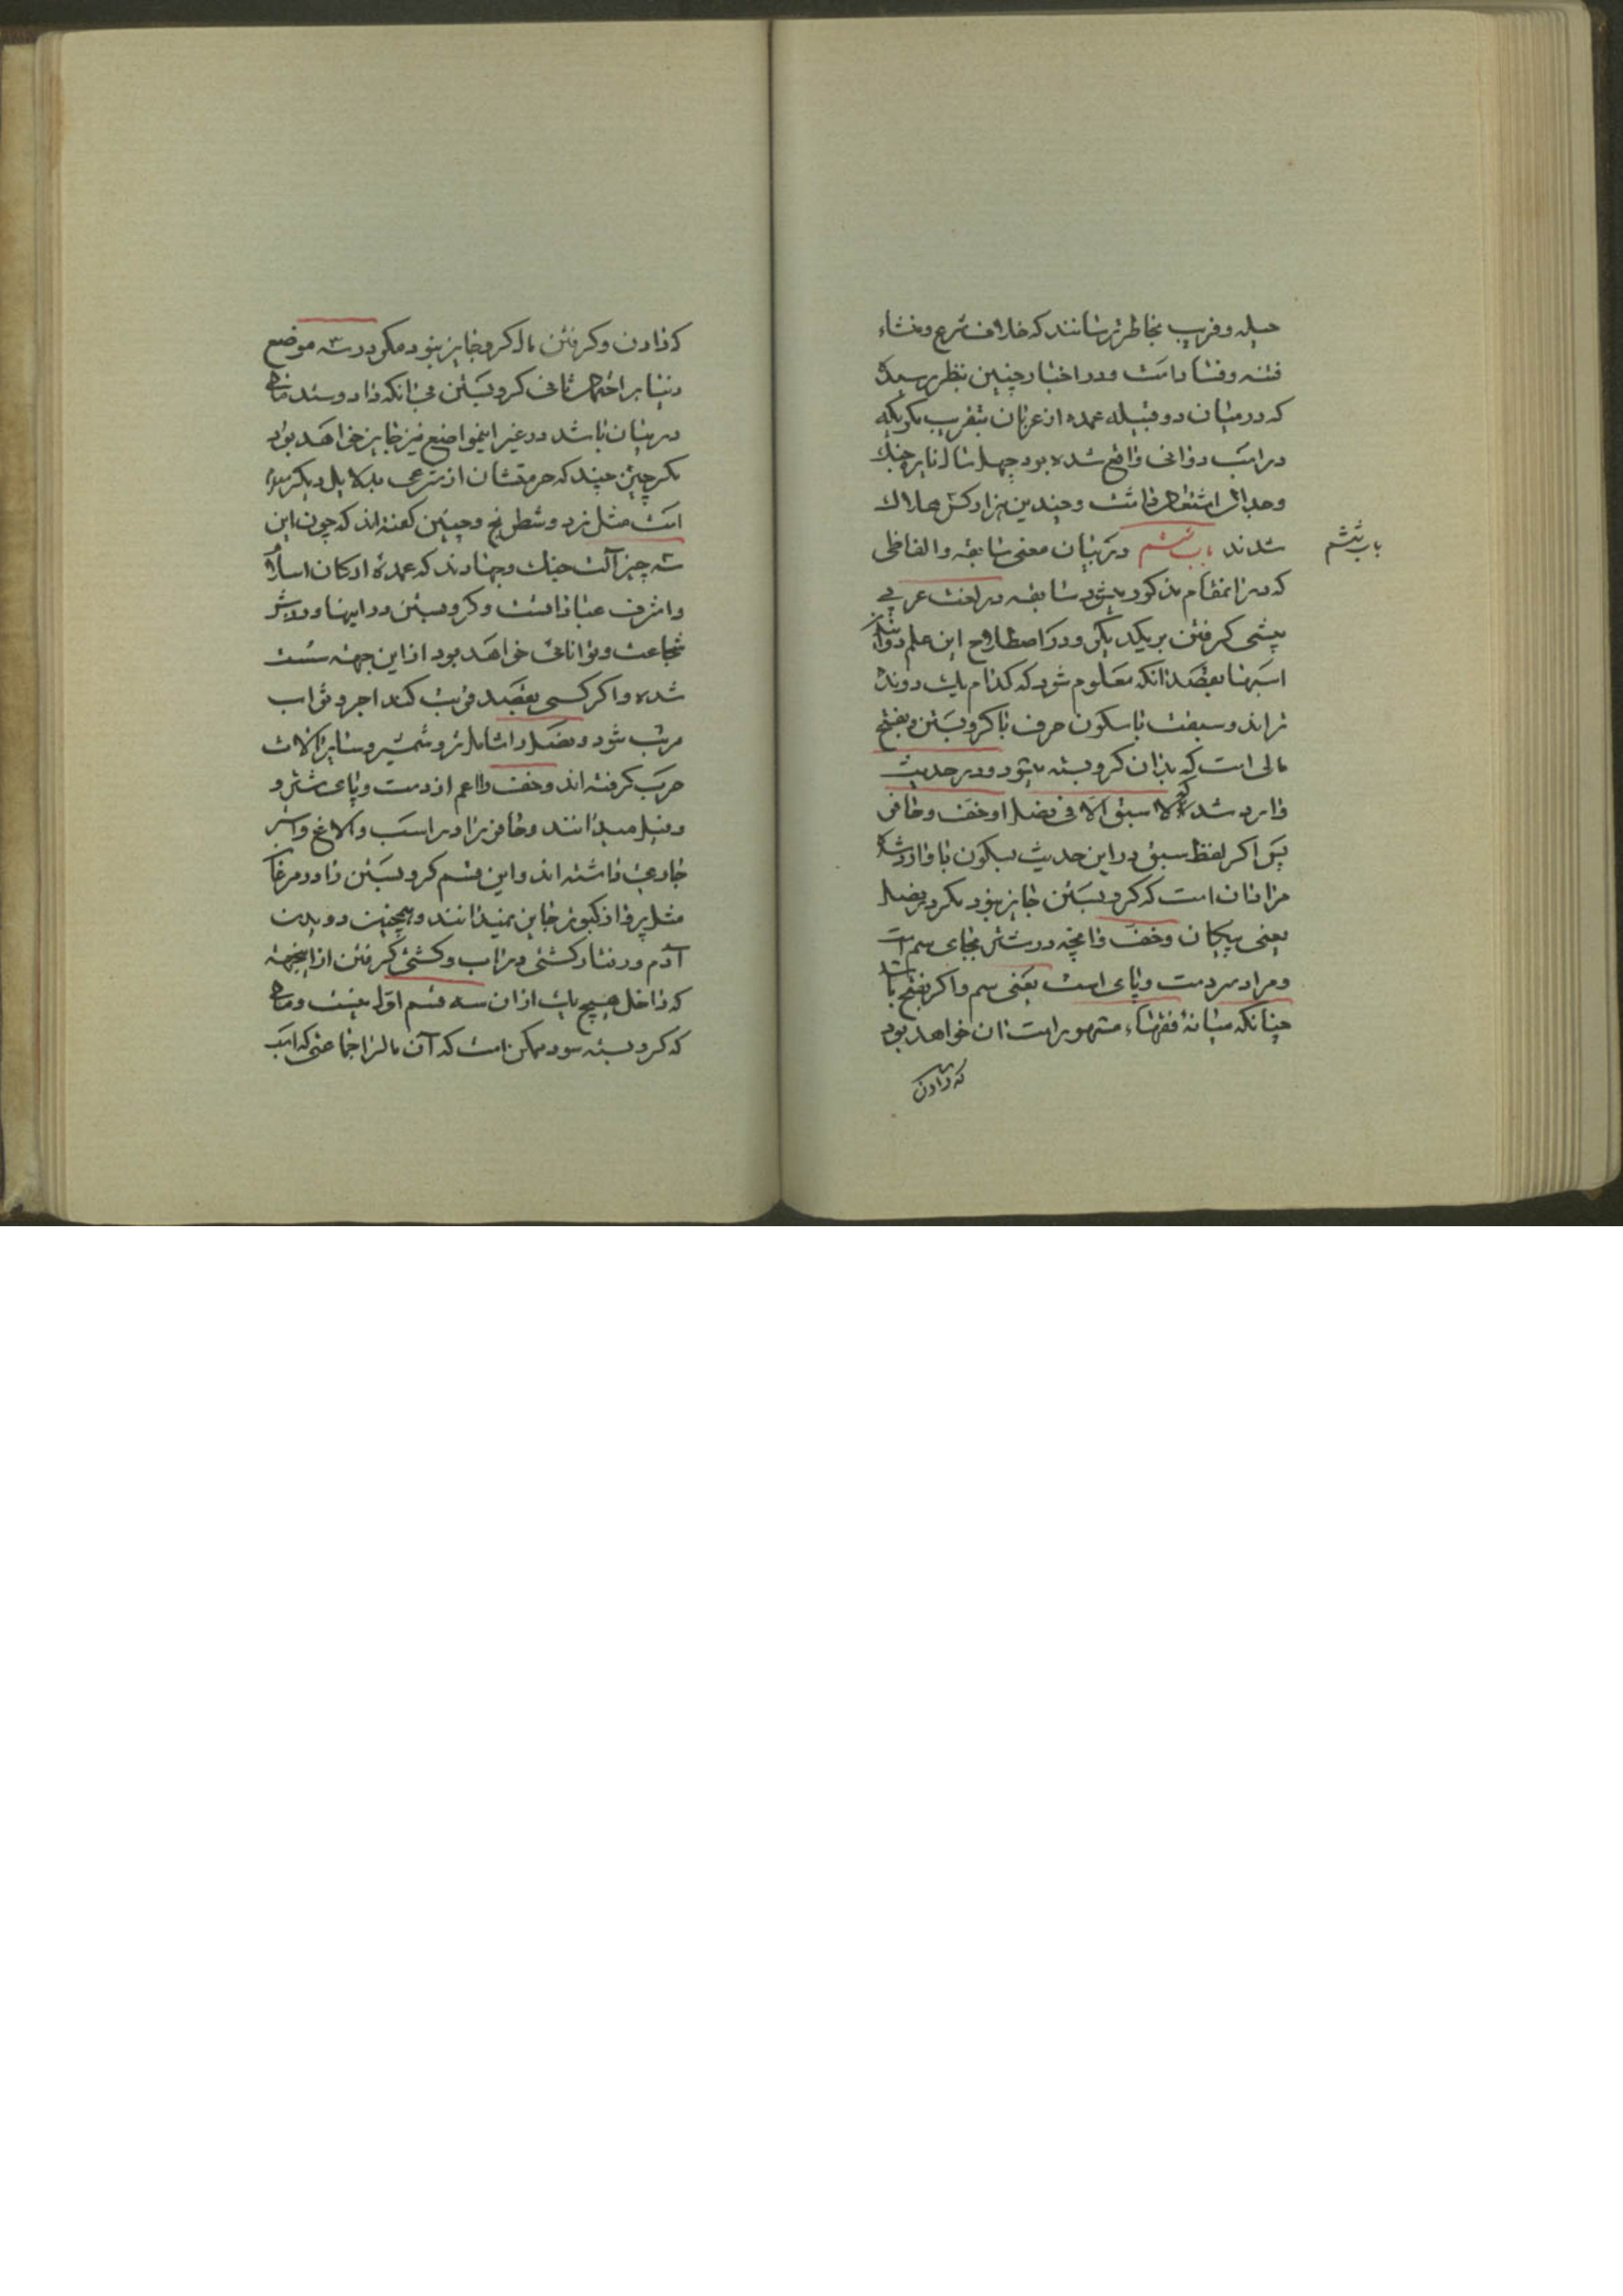 حیله و فریب بخاطر نرسانند که خلاف شرع و منشاء
فتنه و فساد است و در اخبار چنین بنظر رسیده
که در میان دو قبیله عمده از عربان بتقریب مکر بکه
در اسب دوانی واقع شده بود چهل سال نایر جنک
و جدال اشتعال داشت و چندین هزار کس هلاک
شدند باب ششم در بیان معنی سابقه و الفاظی
باب ششم
که در اینمقام مذکور میشود سابقه در لغت عربی
پیشی کرفتن بر یکدیکر و در اصطلاح این علم دوانیدن
اسبها بقصد انکه معلوم شود که کدام یک دونده
تراند و سبقت با سکون حرف با کرو بستن و بفتح
مالی است که بدان کرو بسته میشود و در حدیث
وارد شده که لا سبق الا فی نصل او خف و حافر
پس اکر لفظ سبق در این حدیث بسکون با وارد شده
مراد ان است که کرو بستن جایز نبود مکر در نصل
یعنی پیکان و خف و انچه در شتر بجای سم است
و مراد سر دست و پای است یعنی سم و اکر بفتح با باشد
چنانکه میانهٔ فقهاء مشهور است ان خواهد بود
که دادن
که دادن و کرفتن مال کرو جایز نبود مکر در سه موضع
و بنا بر احتمال ثانی کرو بستن بی انکه داد و ستد مالی
در میان باشد در غیر اینمواضع نیز جایز خواهد بود
مکر چیزی چند که حرمتشان از شرع بدلایل دیکر
است مثل نرد و شطرنج و چنین کفته اند که چون این
سه چیز آلت جنک و جهادند که عمدهٔ ارکان اسلام
و اشرف عبادانست و کرو بستن در اینها و ورزش
شجاعت و توانائی خواهد بود از این جهه سنت
شده و اکر کسی بقصد قربت کند اجر و ثواب
مرتب شود و نصل را شامل تیر و شمشیر و سایر الات
حرب کرفته اند و خف را اعم از دست و پای شتر و
و فیل میدانند و حافر را در اسب و الاغ و استر
جاری داشته اند و این قسم کرو بستن را در مرغان
مثل پرواز کبوتر جایز نمیدانند و همچنین دویدن
آدم و رفتار کشتی در آب و کشتی کرفتن از اینجهه
که داخل هیچ یک از ان سه قسم اول نیست و مالی
که کرو بسته شود ممکن است که آن مال از جماعتی که اسب